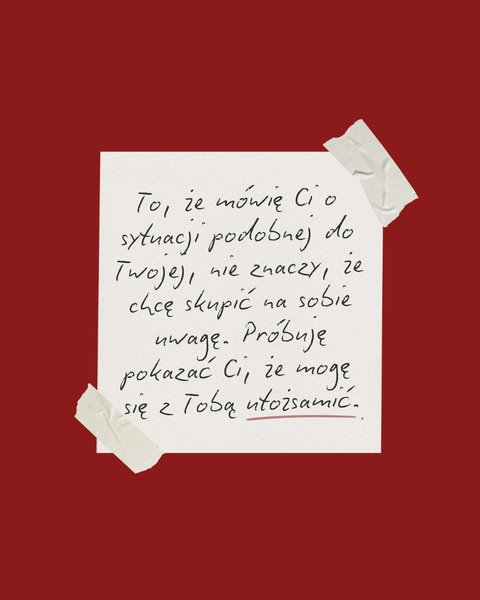 To, że mówię Ci o
sytuacji podobnej do
Twojej, nie znaczy, że
chcę skupić na sobie
uwagę. Próbuję
pokazać Ci, że mogę
się z Tobą utożsamić.